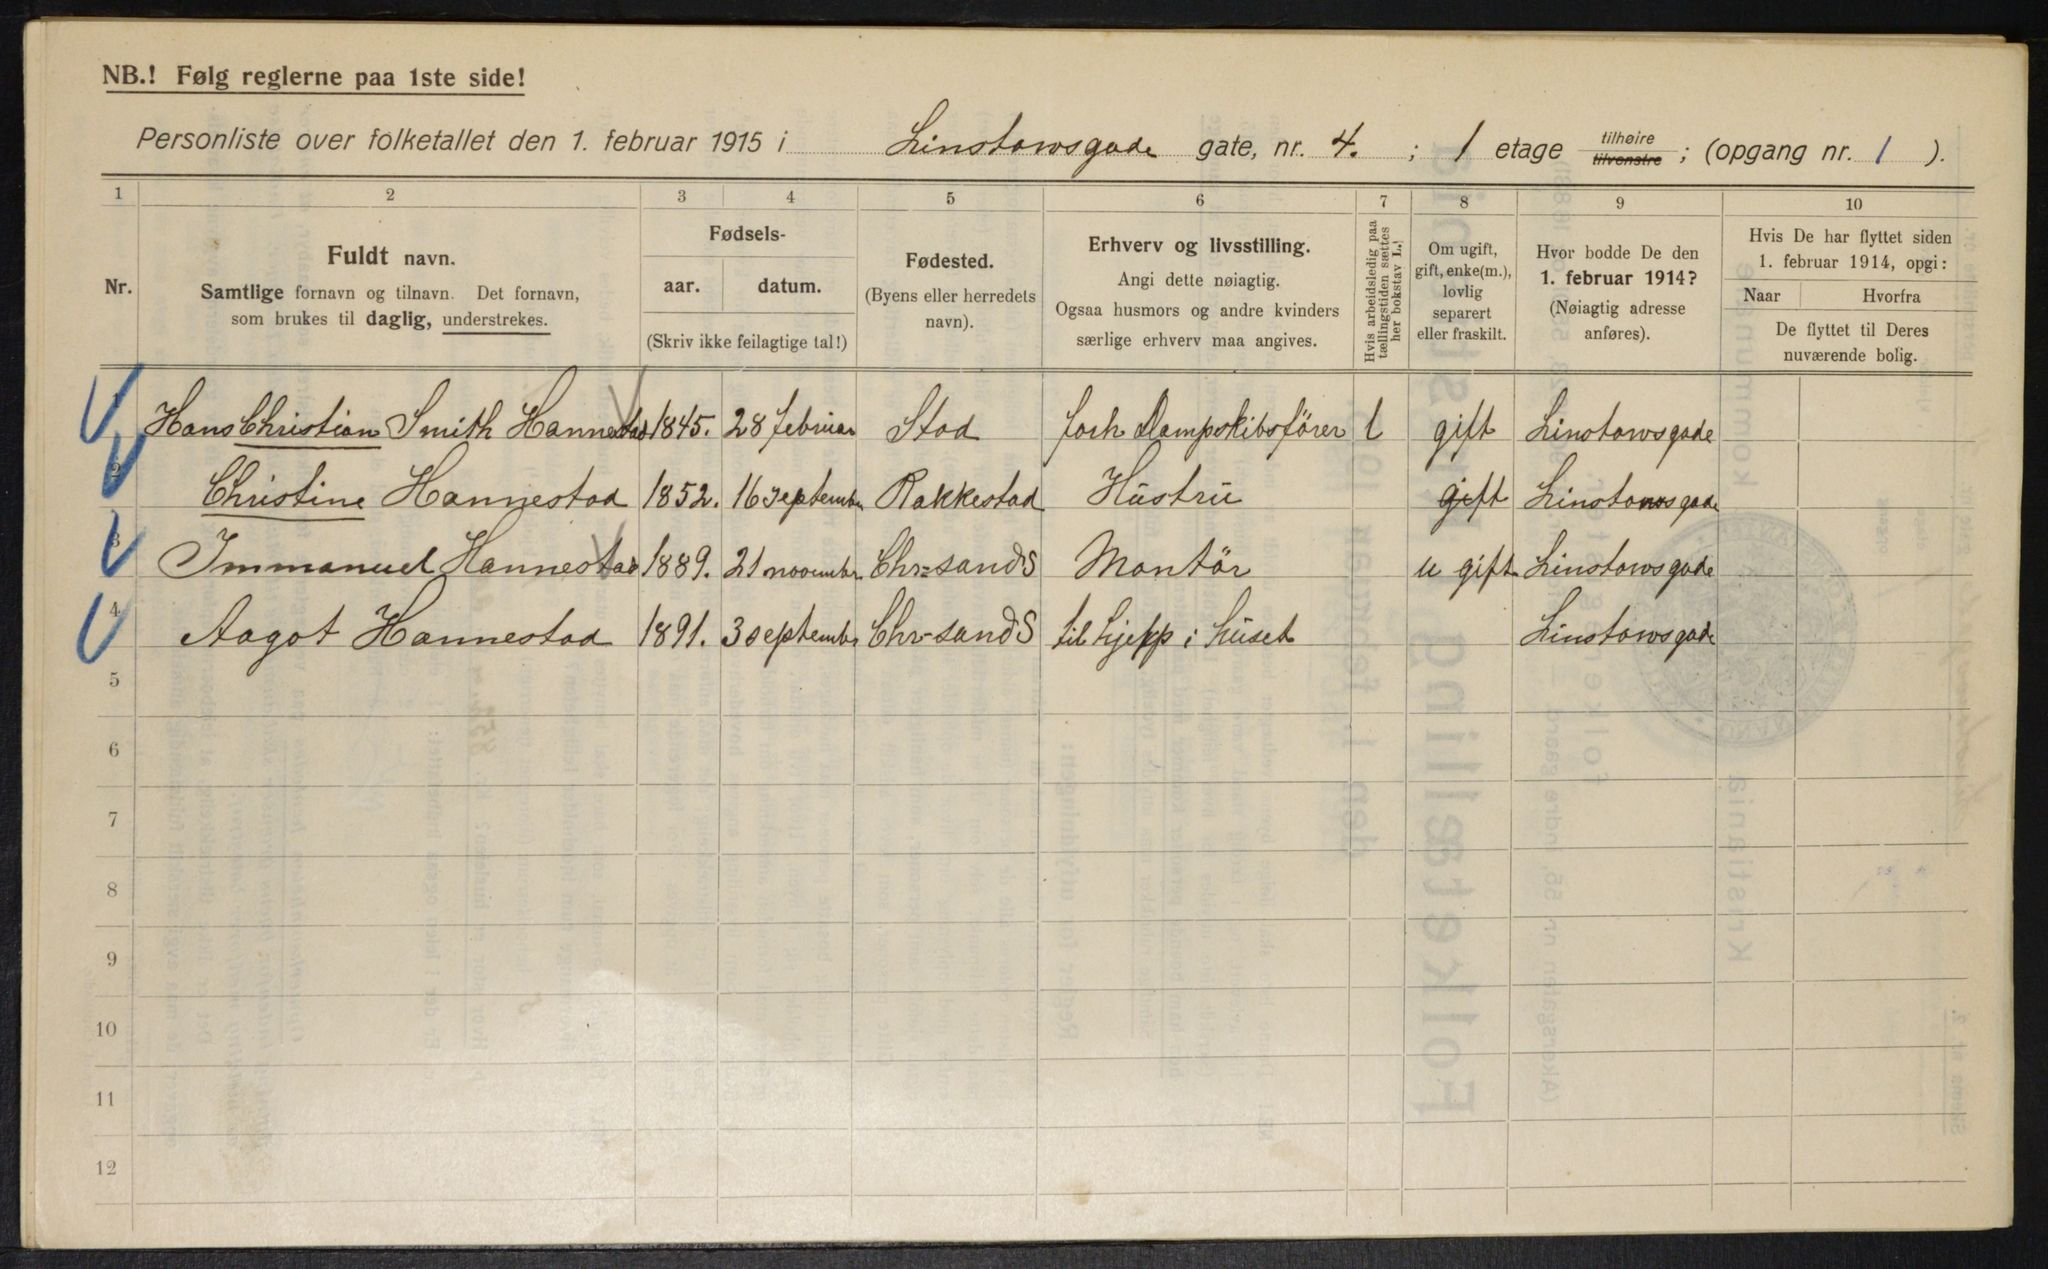 NB.! Følg reglerne paa 1ste side!
Personliste over folketallet den 1. februar 1915 i Linstowsgade gate, nr. 4. ; 1 etage tilhøire tilvenstre ; (opgang nr. 1 ).
1 2 3 4 5 6 7 8 9 10
Nr.
Fuldt navn.
Samtlige fornavn og tilnavn. Det fornavn,
som brukes til daglig, understrekes.
Fødsels-
aar. datum.
(Skriv ikke feilagtige tal!)
Fødested.
(Byens eller herredets
navn).
Erhverv og livsstilling.
Angi dette nøiagtig.
Ogsaa husmors og andre kvinders
særlige erhverv maa angives.
Hvis arbeidsledig paa
tællingstiden sættes
her bokstav L.!
Om ugift,
gift, enke(m.),
lovlig
separert
eller fraskilt.
Hvor bodde De den
1. februar 1914?
(Nøiagtig adresse
anføres).
Hvis De har flyttet siden
1. februar 1914, opgi:
Naar Hvorfra
De flyttet til Deres
nuværende bolig.
1 Hans Christian Smith Hannestad 1845. 28 februar Stod forh Dampskibsfører l gift Linstowsgade
2 Christine Hannestad 1852. 16 september Rakkestad Hüstrü gift Linstowsgade
3 Immanuel Hannestad 1889. 21 november Chr=sands Montör u gift Linstowsgade
4 Aagot Hannestad 1891. 3 september Chr-sands til hjelp i hüset Linstowsgade
5
6
7
8
9
10
11
12